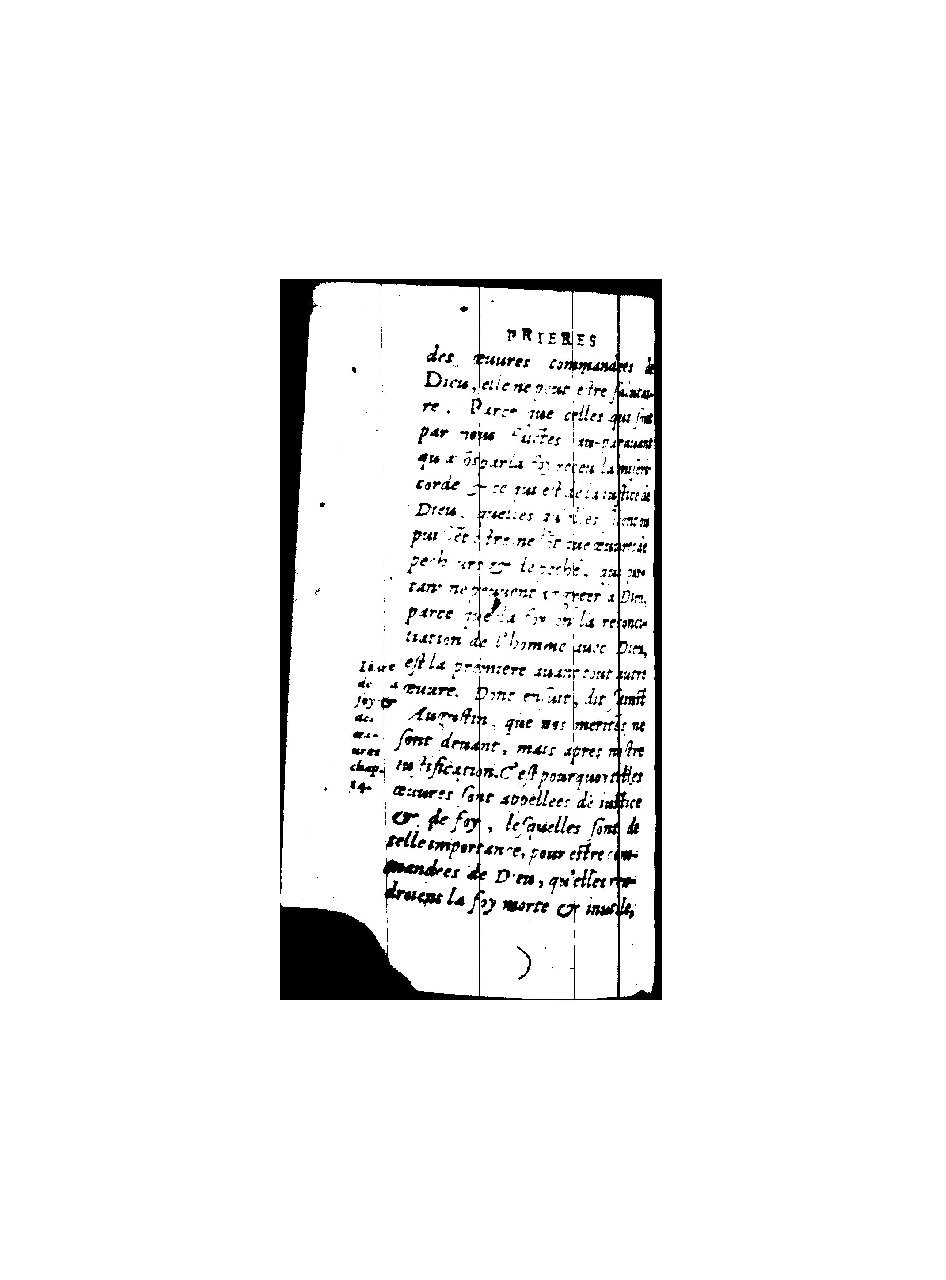 PRIERES
des œuures commandees de
Dieu, elle ne peut estre
re. Parce que celles qui
par nous faictes au-parauant
par la foy receu la
corde & ce qui est de la iustice de
Dieu, quelles
pecheurs & de peché,
tant ne peuuent agreer à Dieu,
parce que la foy la reconci-
liation de l'homme auec Dieu,
est la premiere auant tout autre
œuure. Donc dit sainct
Augustin, que nos merites ne
sont deuant, mais apres nostre
iustification. C'est pourquoy telles
œuures sont appellees de iustice
& de foy, lesquelles sont de
telle importance, pour estre com-
mandees de Dieu, qu'elles ren-
droient la foy morte & inutile,
Liure
de la
foy &
des
œu-
ures
chap.
14.